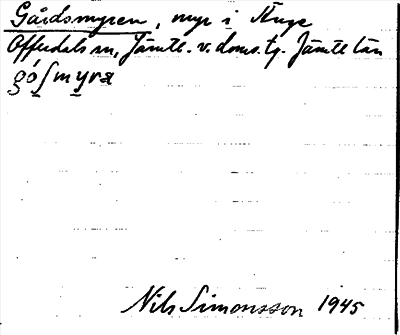 Gårdsmyren, myr i Ånge
Offerdals sn, Jämtl. v. doms. tg. Jämtl. län
gó̠ʃmy̠ra
Nils Simonsson 1945